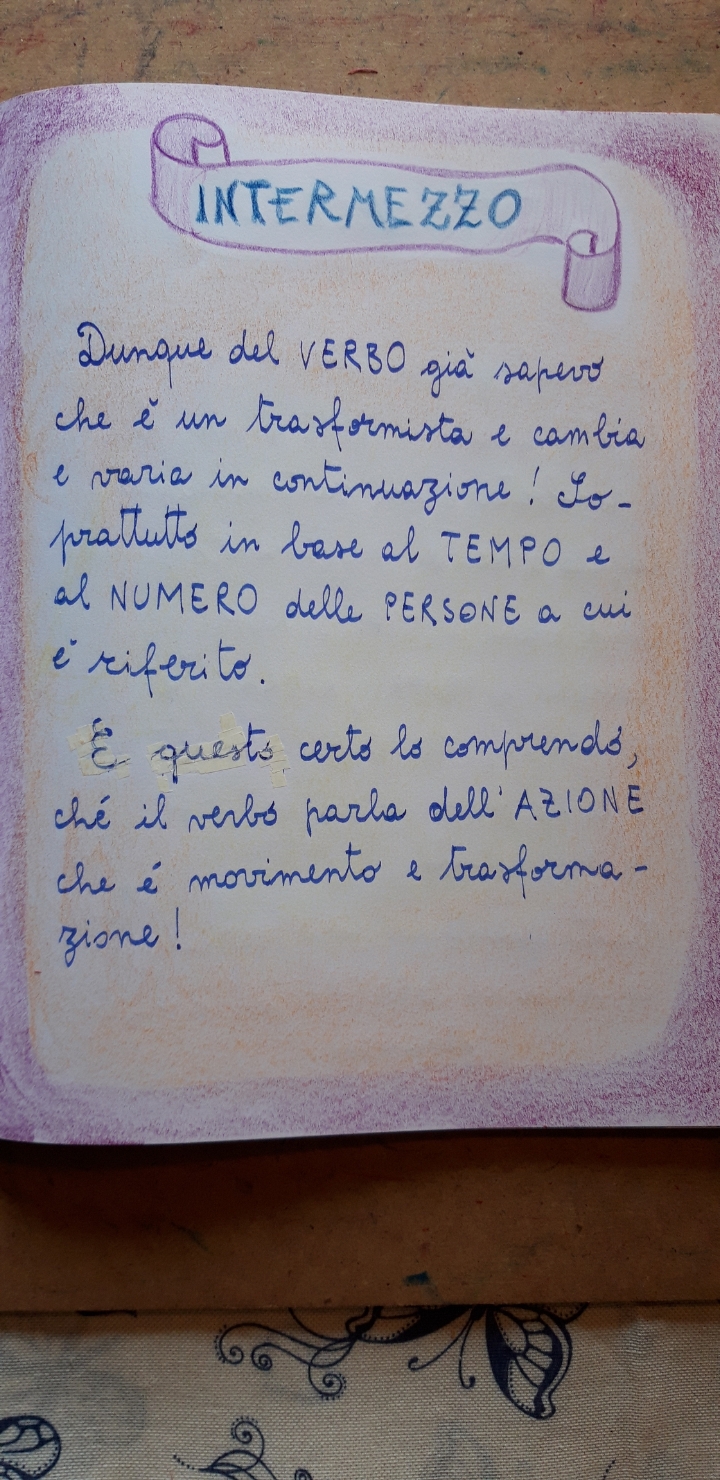 INTERMEZZO
Dunque del VERBO già sapevo
che è un trasformista e cambia
e varia in continuazione! So-
prattutto in base al TEMPO e
al NUMERO delle PERSONE a cui
è riferito.
E questo certo lo comprendo,
ché il verbo parla dell'AZIONE
che é movimento e trasforma-
zione!